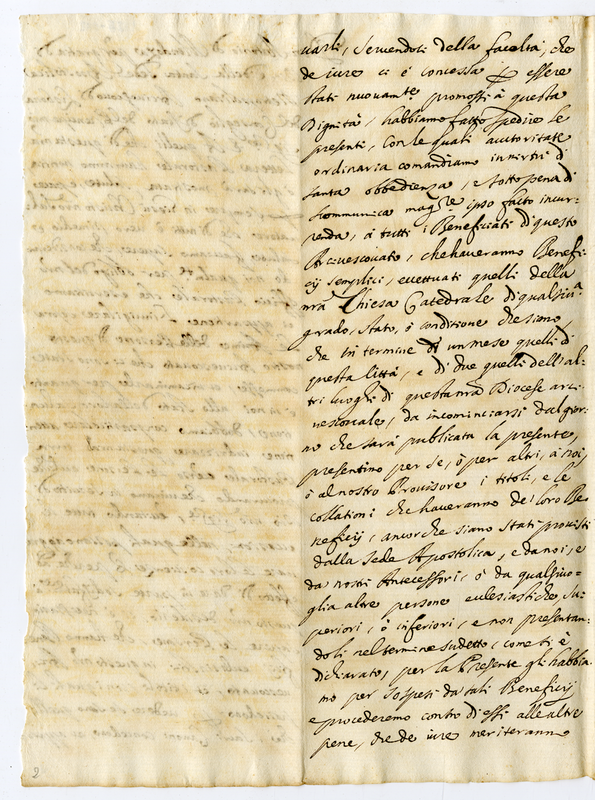 uarli, seruendoci della facoltà, che
de iure ci è concessa per essere
stati nuouam.te promossi à questa
Dignità, habbiamo fatto spedire le
presenti, con le quali auttoritate
ordinaria comandiamo in uirtù di
santa obbedienza, e sotto pena di
scommunica magg.re ipso facto incur-
renda, à tutti i Beneficiati di questo
Arciuescouato, che haueranno Benefi-
cij semplici, eccettuati quelli della
nrã Chiesa Catedrale di qualsiu.a
grado, stato, ò conditione che siano,
che in termine di un mese quelli di
questa Città, e di due quelli dell'al-
tri luoghi di questa nrã Diocese arci-
uescouale, da incominciarsi dal gior-
no che sarà publicata la presente,
presentino per se, ò per altri, à noi,
ò al nostro Prouisore i titoli, e le
collationi che haueranno de' loro Be-
neficij, ancorche siano stati prouisti
dalla Sede Apostolica, e da noi, e
da nostri Antecessori, ò da qualsiuo-
glia altre persone ecclesiastiche su-
periori, ò inferiori, e non presentan-
doli nel termine sudetto, come si è
dichiarato, per la Presente gli habbia-
mo per sospesi da tali Beneficij
e procederemo contro di essi alle altre
pene, che de iure meriteranno
2